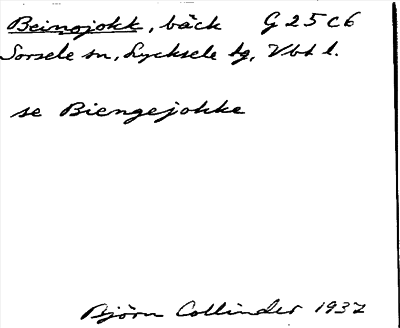 Beinojokk, bäck G 25 c 6
Sorsele sn, Lycksele lg, Vbt l.
se Biengejokke
Björn Collinder 1937